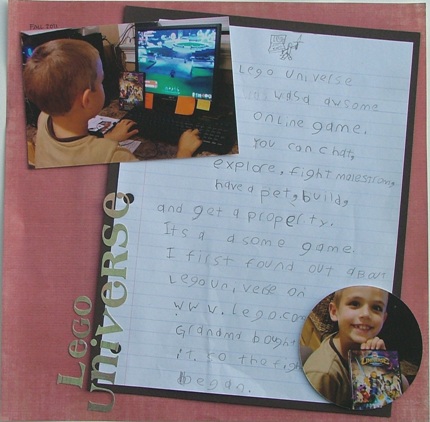 Lego Universe
Lego Universe
wasd awsome
online game.
You can chat,
explore, fight malestrom,
have a pet, build,
and get a propelity.
Its a asome game.
I first found out about
Legouniverse on
www.lego.co
Grandma bought
it. so the figh
began.